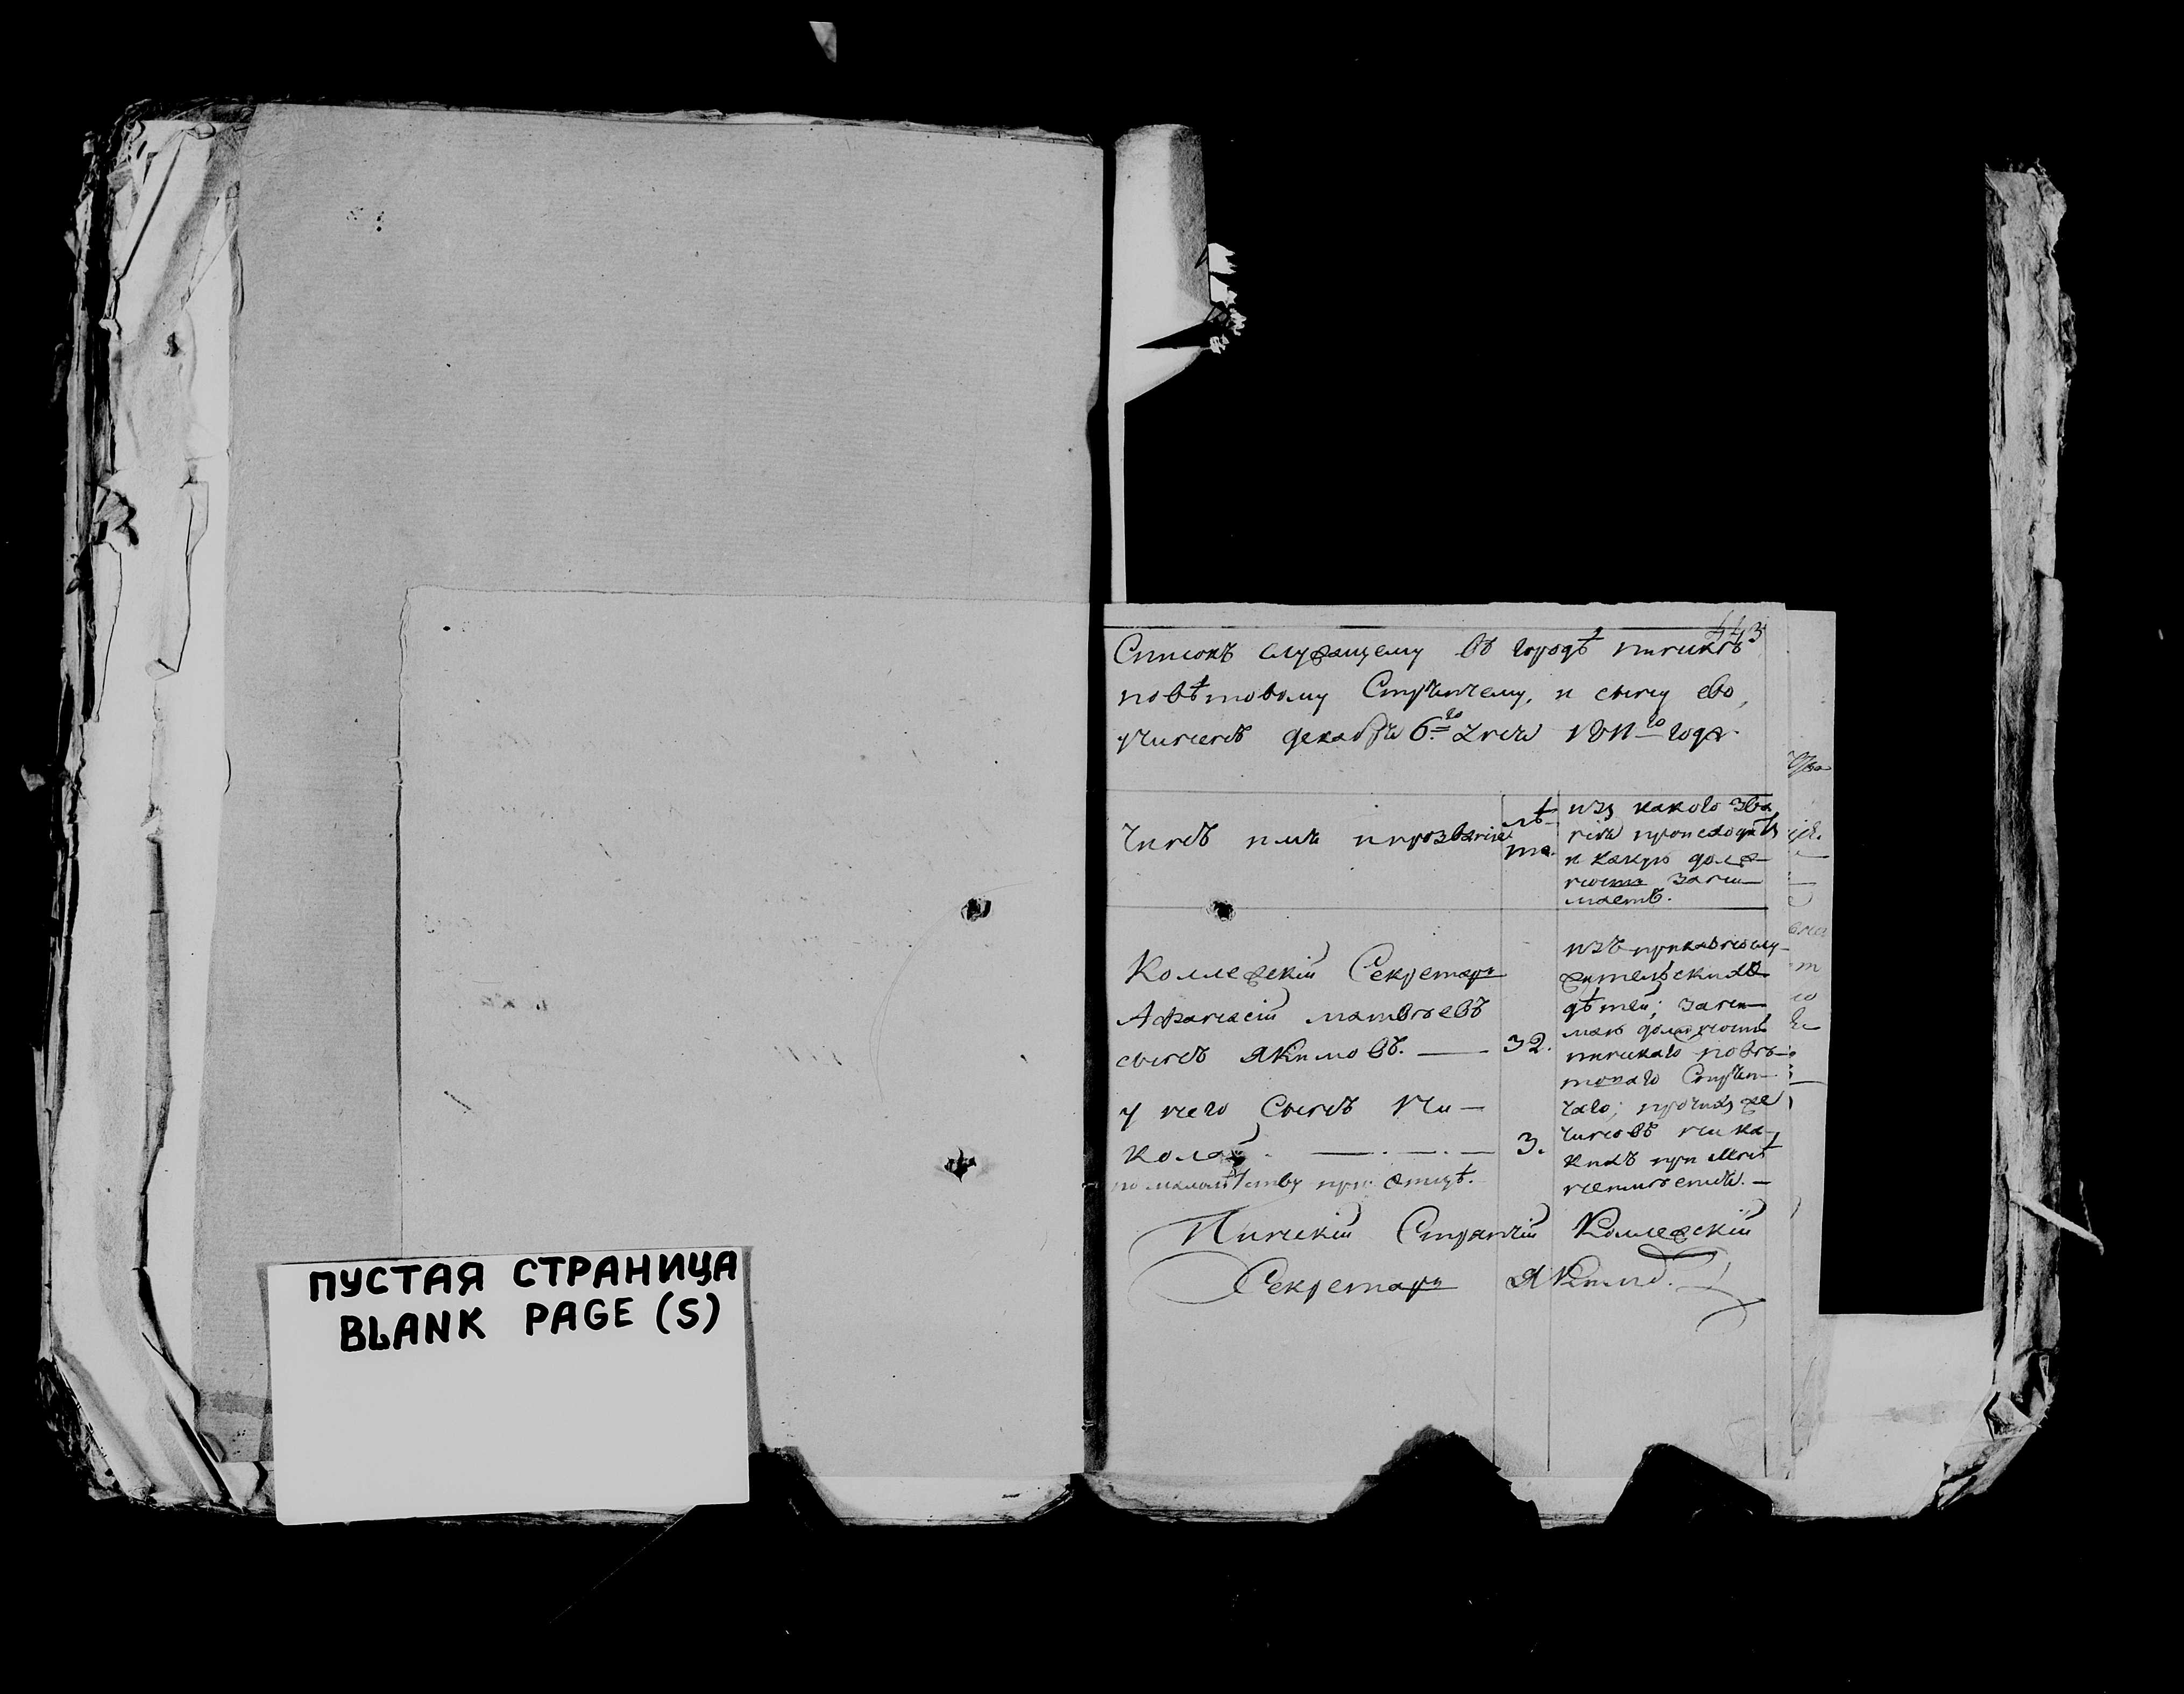 ПУСТАЯ СТРАНИЦА
BLANK PAGE (S)
443
Списокъ служащему въ городѣ пинскѣ
повѣтовому Стряпчему, и сыну ево,
учиненъ декабря 6го дня 1811го года
Чинъ имя и прозваніе
лѣ-
та.
изъ какого зва
нія происходитъ
и какую долж-
ность зани-
маетъ.
Коллежскій Секретарь
Афанасій матвѣевъ
сынъ Якимовъ. — 32.
у него Сынъ Ни-
колай — 3.
по малолѣтству при отцѣ.
изъ приказнослу-
жительскихъ
дѣтей; зани-
маю должность
пинскаго повѣ-
товаго Стряп-
чаго; прочихъ же
чиновъ ни ка-
кихъ при мнѣ
неимѣется. —
Пинскій Стряпчій Коллежскій
Секретарь Якимов.